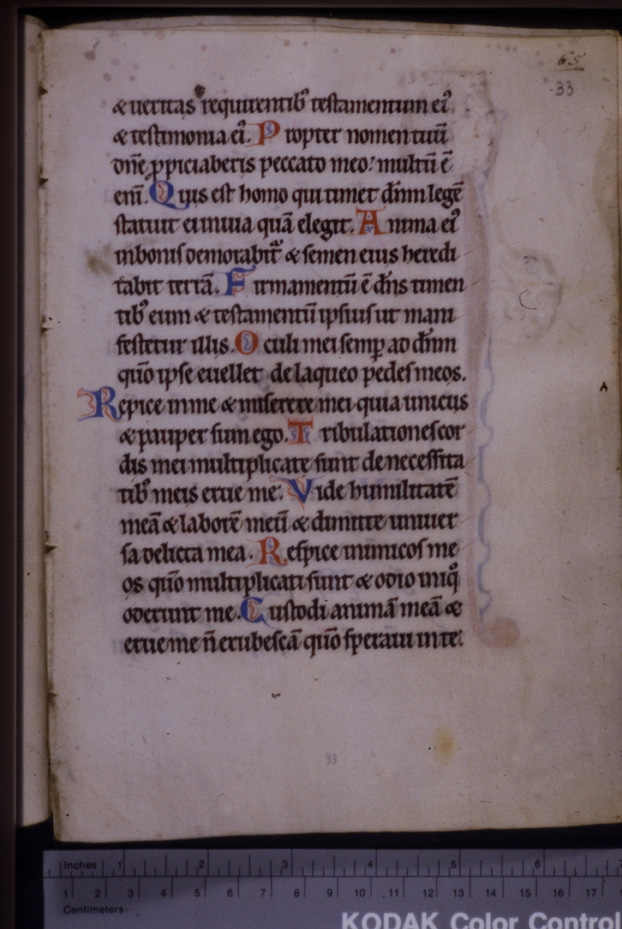 65
33
& ueritas requirentib᷒ testamentum ei᷒
& testimonia ei᷒. Propter nomen tuũ
dñe ꝓpiciaberis peccato meo: multũ ẽ
eni᷒. Quis est homo qui timet dñm legẽ
statuit ei inuia quã elegit. Anima ei᷒
inbonis demorabit᷑ & semen eius heredi
tabit terrã. Firmamentũ ẽ dñs timen
tib᷒ eum & testamentũ ipsius ut mani
festetur illis. Oculi mei semp̱ ad dñm
quõ ipse euellet delaqueo pedes meos.
Repice inme & miserere mei quia unicus
& pauper sum ego. Tribulationes cor
dis mei multiplicate sunt denecessita
tib᷒ meis erue me. Vide humilitatẽ
meã & laborẽ meũ & dimitte uniuer
sa delicta mea. Respice inimicos me
os quõ multiplicati sunt & odio iniq̃
oderunt me. Custodi animã meã &
erue me ñ erubescã quõ speraui in te.
33
A
inches 1 2 3 4 5 6
1 2 3 4 5 6 7 8 9 10 11 12 13 14 15 16 17
Centimeters
KODAK Color Control